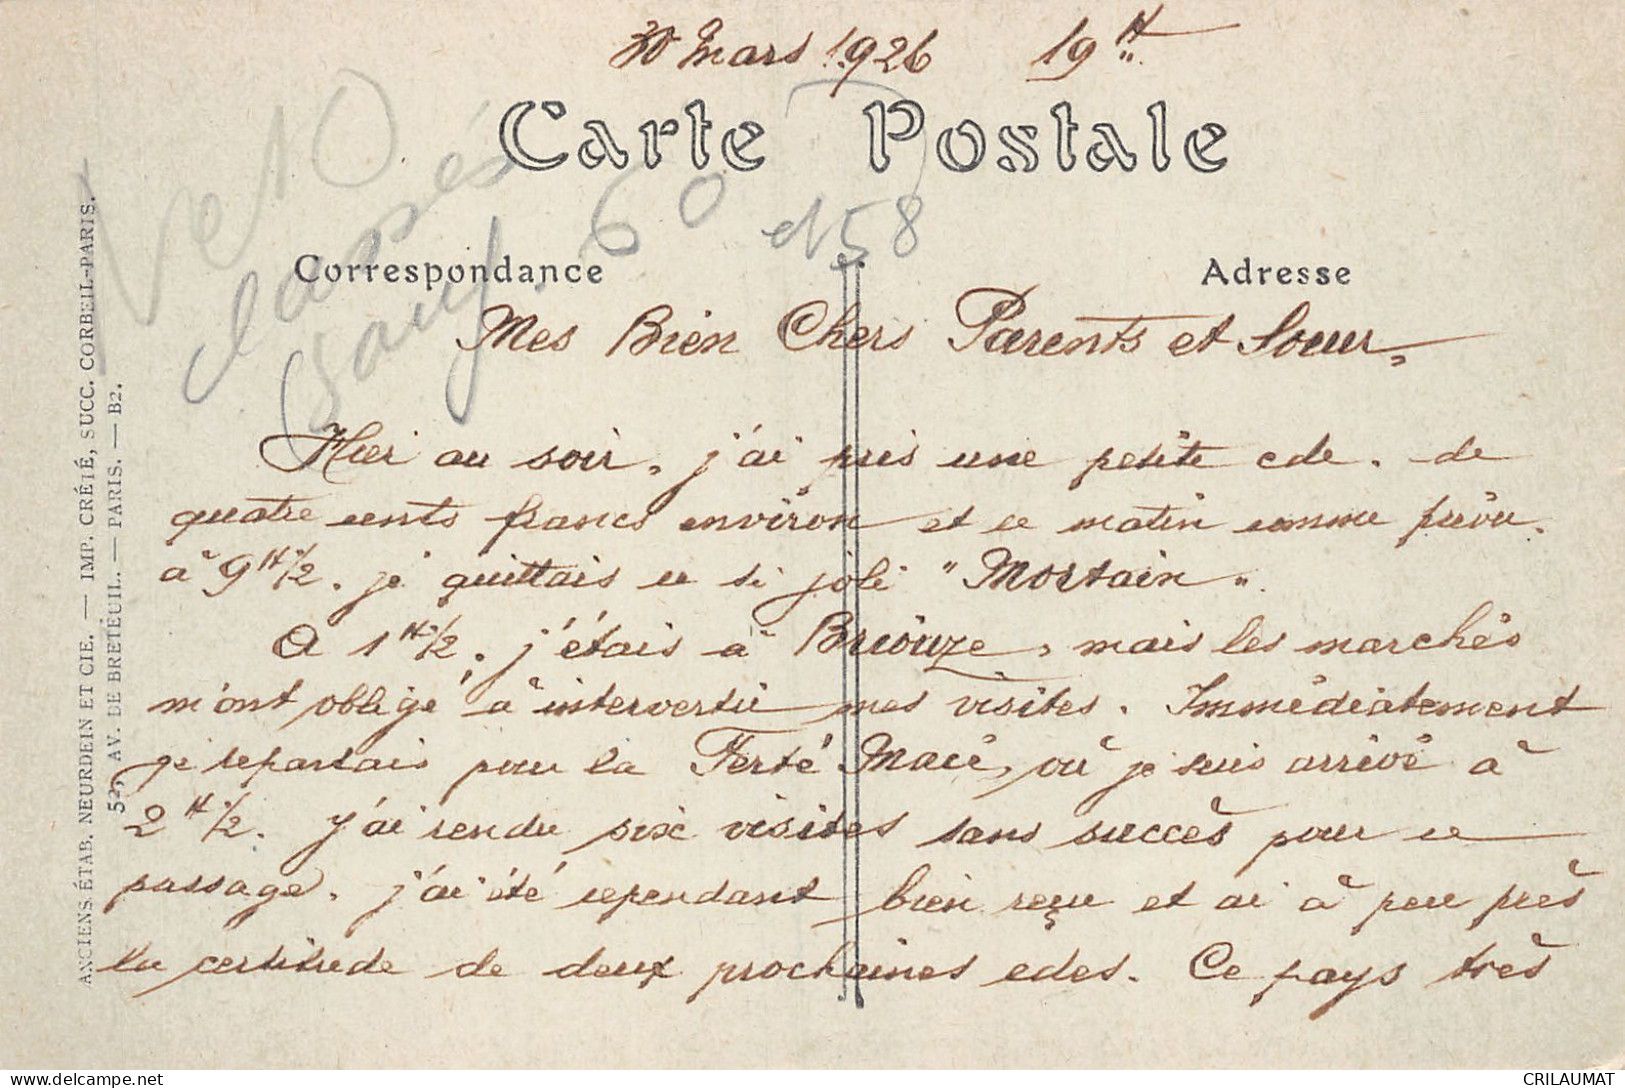 30 Mars 1926 19H
Carte Postale
60
et 58
Correspondance
Adresse
Mes Bien Chers Parents et Soeur,
Hier au soir, j'ai pris une petite cde. de
quatre cents francs environ et ce matin comme prévu.
à 9H1/2. je quittais ce si joli "Mortain".
A 1H1/2. j'étais à Briouze, mais les marchés
m'ont obligé à intervertir mes visites. Immédiatement
je repartais pour la Ferté Macé, où je suis arrivé à
2H1/2. J'ai rendu six visites sans succès pour ce
passage. j'ai été cependant bien reçu et ai à peu près
la certitude de deux prochaines cdes. Ce pays très
ANCIENS. ÉTAB. NEURDEIN ET CIE. — IMP. CRÉTÉ, SUCC. CORBEIL-PARIS.
52, AV. DE BRETEUIL. — PARIS. — B2.
delcampe.net
CRILAUMAT